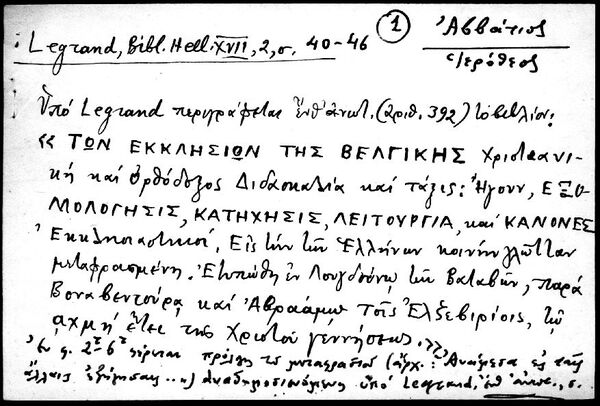 Legrand, Bibl. Hell. XVII, 2, σ. 40-46 ① Ἀββάτιος
Ἱερόθεος
Ὑπό Legrand περιγράφεται ἔνθ' ἀνωτ. (ἀριθ. 392) τό βιβλίον:
« ΤΩΝ ΕΚΚΛΗΣΙΩΝ ΤΗΣ ΒΕΛΓΙΚΗΣ Χριστιανι-
κή καί Ὀρθόδοξος Διδασκαλία καί τάξις: Ἤγουν, ΕΞΟ-
ΜΟΛΟΓΗΣΙΣ, ΚΑΤΗΧΗΣΙΣ, ΛΕΙΤΟΥΡΓΙΑ, καί ΚΑΝΟΝΕΣ
Ἐκκλησιαστικοί. Εἰς τήν τῶν Ἑλλήνων κοινήν γλῶτταν
μεταφρασμένη. Ἐτυπώθη ἐν Λουγδούνῳ τῶν Βαταβῶν, παρά
Βοναβεντούρᾳ καί Ἀβραάμῳ τοῖς Ἐλζεβιρίοις, τῷ
αχμή ἔτει τῆς Χριστοῦ γεννήσεως.»
Ἐν φ. 2 6 πρόλογος τοῦ μεταφραστοῦ (ἀρχ.: Ἀνάμεσα εἰς ταῖς
ἄλλαις ..) ἀναδημοσιευόμενος ὑπό Legrand, ἔνθ' ἀνωτ., σ.